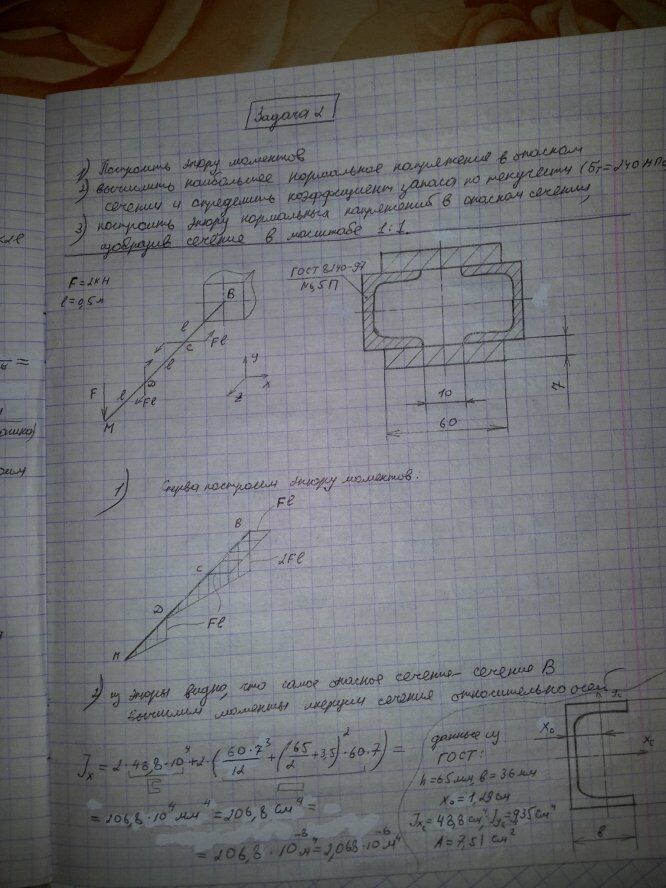 Задача 2
1) Построить эпюру моментов
2) вычислить наибольшее нормальное напряжение в опасном
сечении и определить коэффициент запаса по текучести (σт=240 МПа
3) построить эпюру нормальных напряжений в опасном сечении,
изобразив сечение в масштабе 1:1.
F=2кН
l=0,5м
ГОСТ 8240-97
№6,5П
B
l
C
Fl
l
D
Fl
l
F
M
y
x
z
10
60
7
1) Сперва построим эпюру моментов:
Fl
B
2Fl
C
D
Fl
M
2) из эпюры видно, что самое опасное сечение - сечение B
Вычислим моменты инерции сечения относительно осей
Jx = 2·48,8·10⁴+2·(60·7³/12+(65/2+3,5)²·60·7)=
=206,8·10⁴ мм⁴=206,8 см⁴=
=206,8·10⁻⁸м⁴=2,068·10⁻⁶м⁴
данные из
ГОСТ:
h=65мм, в=36мм
x₀=1,29см
A=7,51 см²
x₀
в